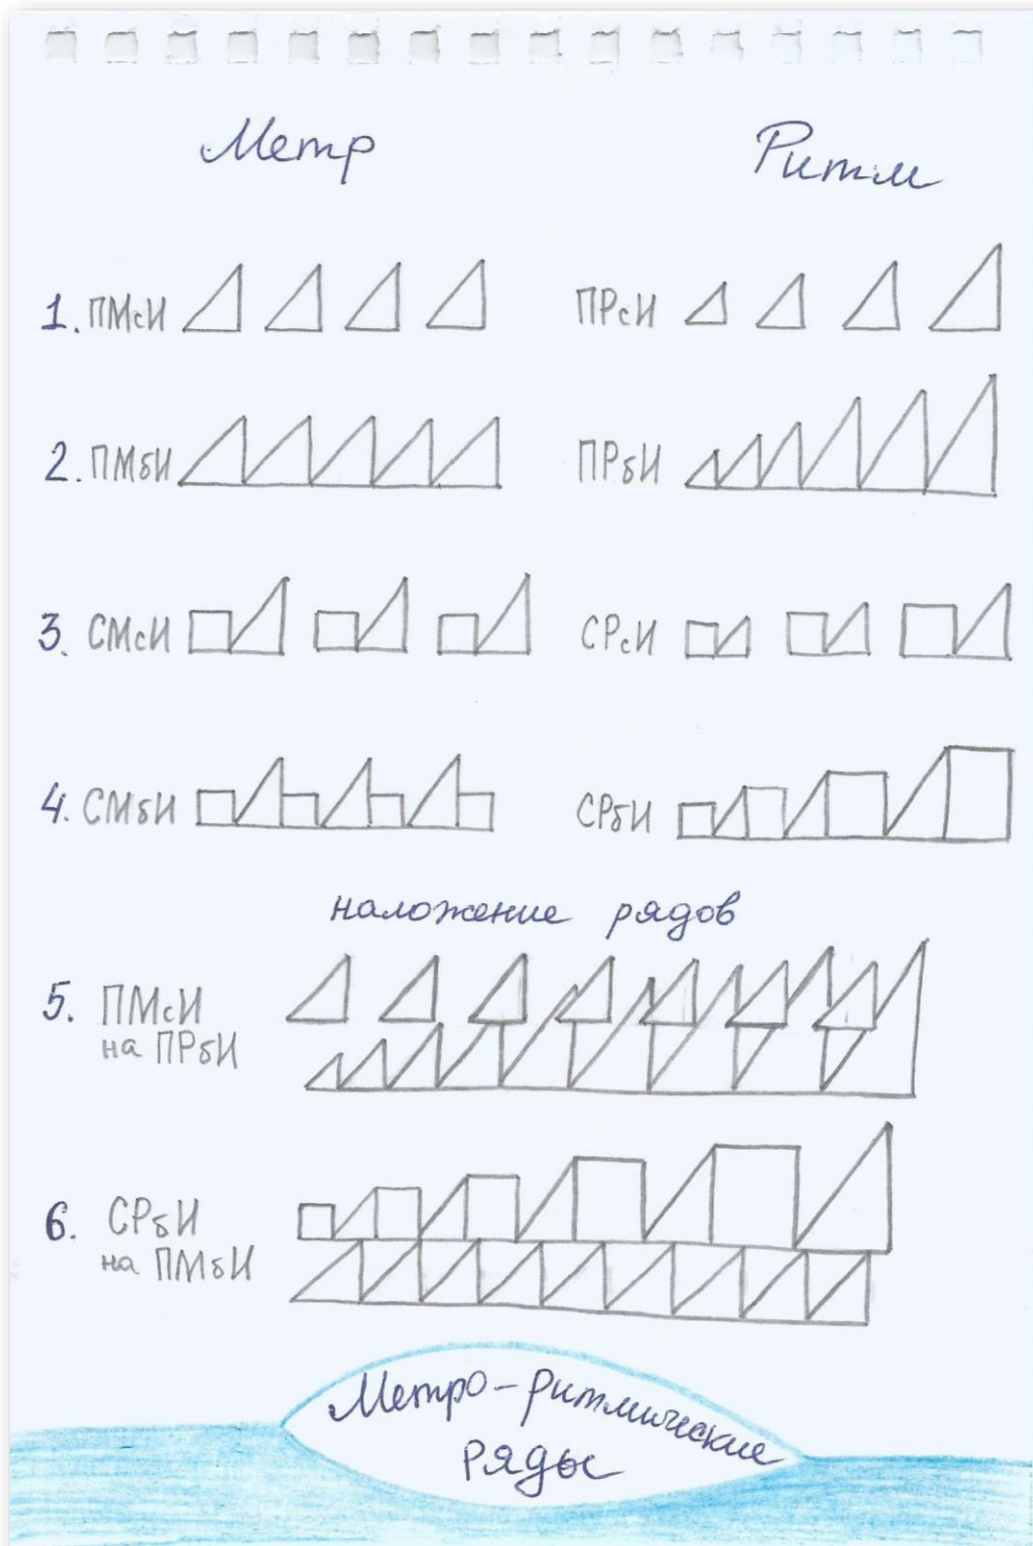 Метр Ритм
1. ПМсИ ПРсИ
2. ПМбИ ПРбИ
3. СМсИ СРсИ
4. СМбИ СРбИ
наложение рядов
5. ПМсИ
на ПРбИ
6. СРбИ
на ПМбИ
Метро-ритмические
ряды